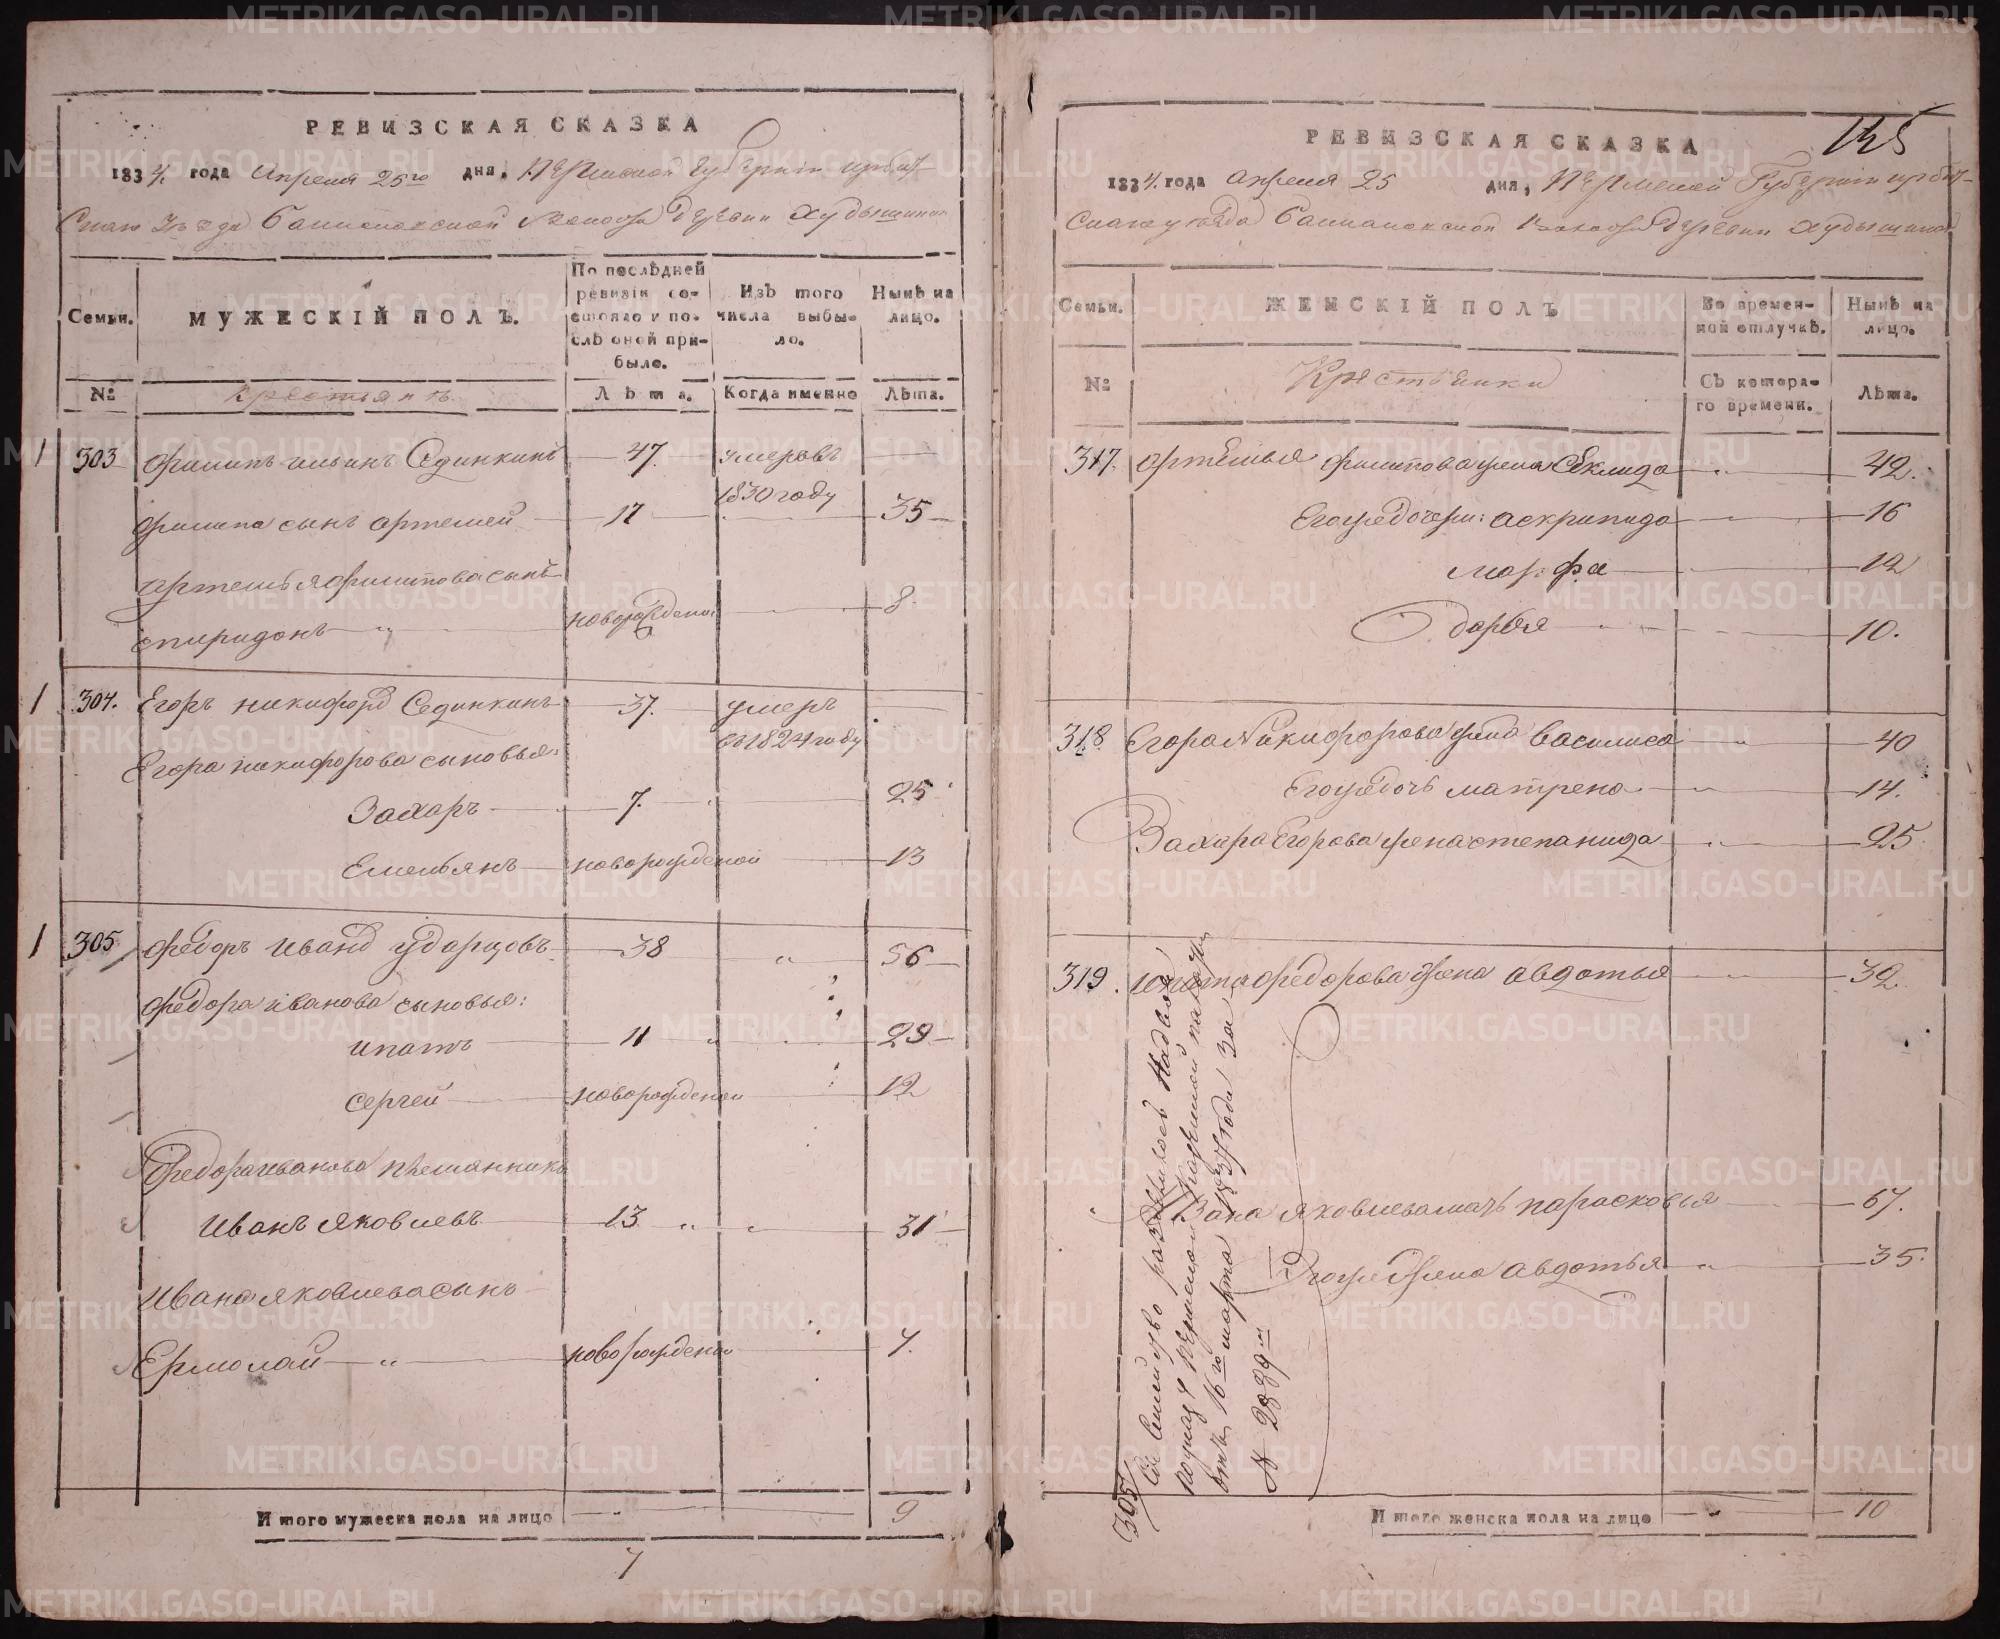 РЕВИЗСКАЯ СКАЗКА
1834. года Апреля 25го дня, Пермской Губернiи ирбит-
скаго уезда волости деревни Худышиной
Семьи. МУЖЕСКIЙ ПОЛЪ. По послѣдней ревизiи состояло и послѣ оной прибыло. Изъ того числа выбыло. Нынѣ на лицо.
№ Крестьянъ Лѣта. Когда именно Лѣта.
1 303 Филипъ ильинъ Сединкинъ 47. умеръ въ
1830 году
Филипа сынъ артемей 17 35
артемья Филипова сынъ
спиридонъ новорожденой 8.
1 304. Егоръ никифоровъ Сединкинъ 37. умеръ
въ 1824 году
Егора никифорова сыновья:
Захаръ 7. 25
Емельянъ новорожденой 13
1 305 Федоръ Ивановъ ударцовъ 38 „ 56
Федора Иванова сыновья:
ипатъ 11 29
сергей новорожденой 12
Федора иванова племянникъ
Иванъ яковлевъ 13 „ „ 31
Ивана яковлева сынъ
Ермолай „ новорожденой 7.
Итого мужеска пола на лицо 9
7
145
РЕВИЗСКАЯ СКАЗКА
1834. года апреля 25 дня, Пермской Губернiи ирбит-
скаго уезда волости деревни Худышиной
Семьи. ЖЕНСКIЙ ПОЛЪ Во временной отлучкѣ. Нынѣ на лицо.
№ Крестьянки Съ котораго времени. Лѣта.
317. артемья филипова жена Феклида „ 42.
Егоже дочери: аскрипида 16
марфа 12
дарья 10.
318 Егора Никифорова жена василиса „ 40
Егоже дочь матрена „ 14.
Захара Егорова жена степанида „ 25
319. ипата федорова жена авдотья 32
Ивана яковлева мать парасковья 67.
Егоже жена авдотья „ 35.
305/ Сiе Семейство разделилось Надвое
по указу Пермской казенной палаты
отъ 16го марта 1837 года за
N 2839м
Итого женска пола на лицо „ 10
METRIKI.GASO-URAL.RU